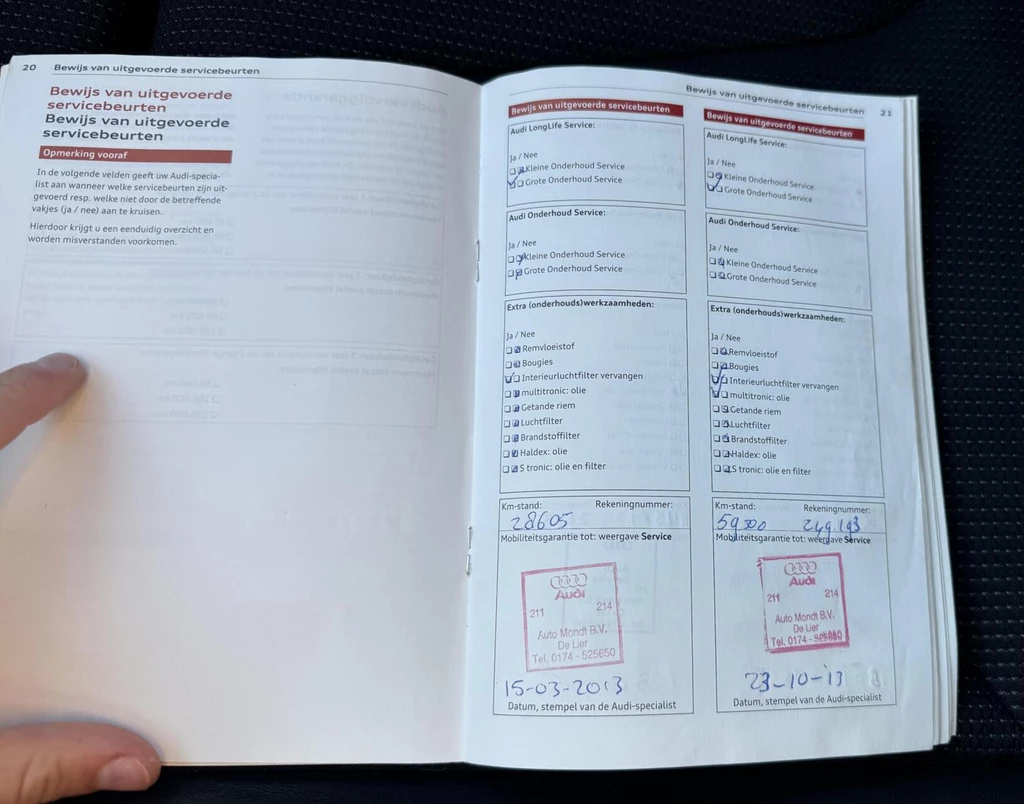 20 Bewijs van uitgevoerde servicebeurten
Bewijs van uitgevoerde
servicebeurten
Bewijs van uitgevoerde
servicebeurten
Opmerking vooraf
In de volgende velden geeft uw Audi-specia-
list aan wanneer welke servicebeurten zijn uit-
gevoerd resp. welke niet door de betreffende
vakjes (ja / nee) aan te kruisen.
Hierdoor krijgt u een eenduidig overzicht en
worden misverstanden voorkomen.
Bewijs van uitgevoerde servicebeurten 21
Bewijs van uitgevoerde servicebeurten
Audi LongLife Service:
Ja / Nee
Kleine Onderhoud Service
Grote Onderhoud Service
Audi Onderhoud Service:
Ja / Nee
Kleine Onderhoud Service
Grote Onderhoud Service
Extra (onderhouds)werkzaamheden:
Ja / Nee
Remvloeistof
Bougies
Interieurluchtfilter vervangen
multitronic: olie
Getande riem
Luchtfilter
Brandstoffilter
Haldex: olie
S tronic: olie en filter
Km-stand: Rekeningnummer:
28605
Mobiliteitsgarantie tot: weergave Service
Audi
211 214
Auto Mondt B.V.
De Lier
Tel. 0174 - 525650
15-03-2013
Datum, stempel van de Audi-specialist
Bewijs van uitgevoerde servicebeurten
Audi LongLife Service:
Ja / Nee
Kleine Onderhoud Service
Grote Onderhoud Service
Audi Onderhoud Service:
Ja / Nee
Kleine Onderhoud Service
Grote Onderhoud Service
Extra (onderhouds)werkzaamheden:
Ja / Nee
Remvloeistof
Bougies
Interieurluchtfilter vervangen
multitronic: olie
Getande riem
Luchtfilter
Brandstoffilter
Haldex: olie
S tronic: olie en filter
Km-stand: Rekeningnummer:
59300 249.193
Mobiliteitsgarantie tot: weergave Service
Audi
211 214
Auto Mondt B.V.
De Lier
Tel. 0174 - 525650
23-10-'13
Datum, stempel van de Audi-specialist